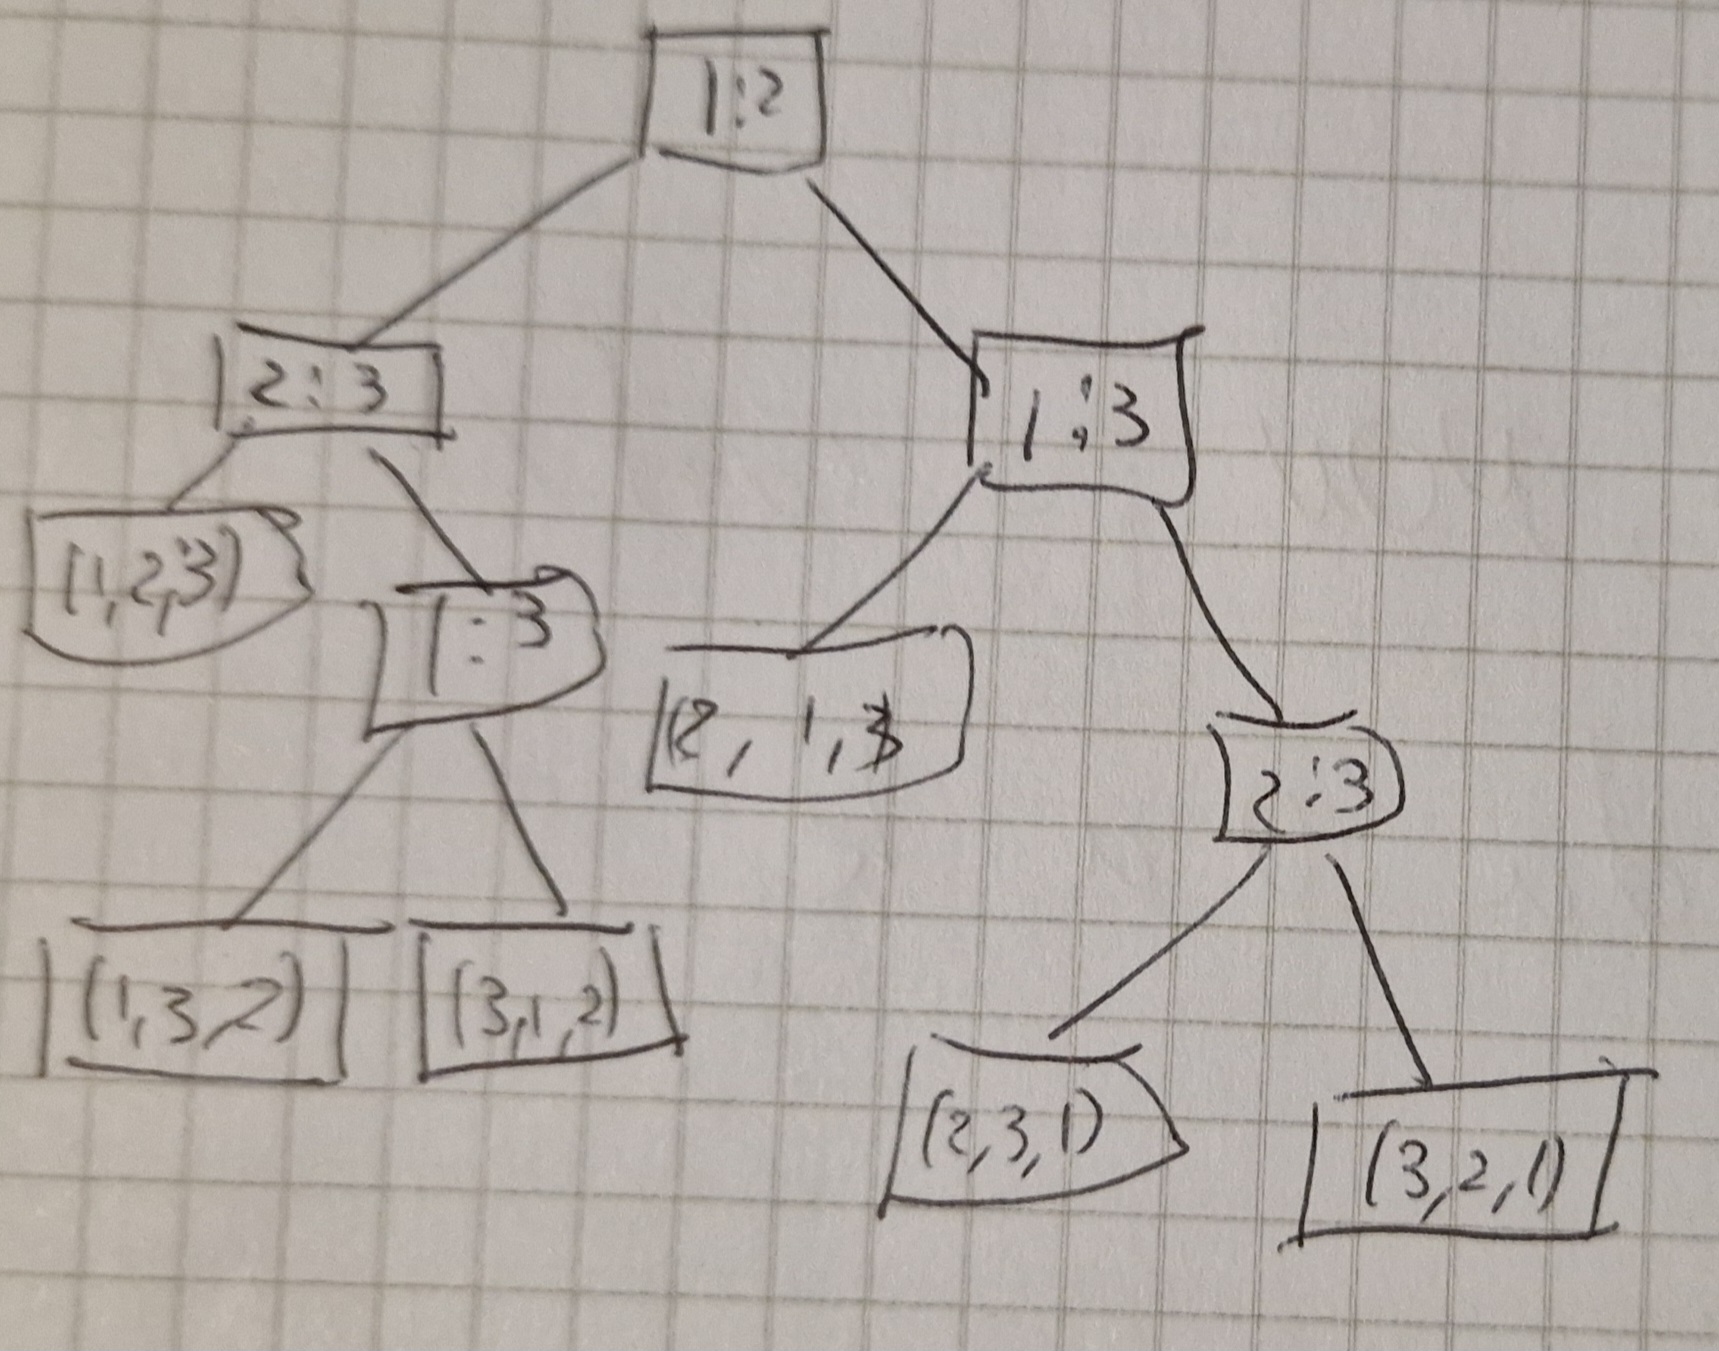 1:2
2:3
1:3
(1,2,3)
1:3
(2, 1,3
2:3
(1,3,2)
(3,1,2)
(2,3,1)
(3,2,1)